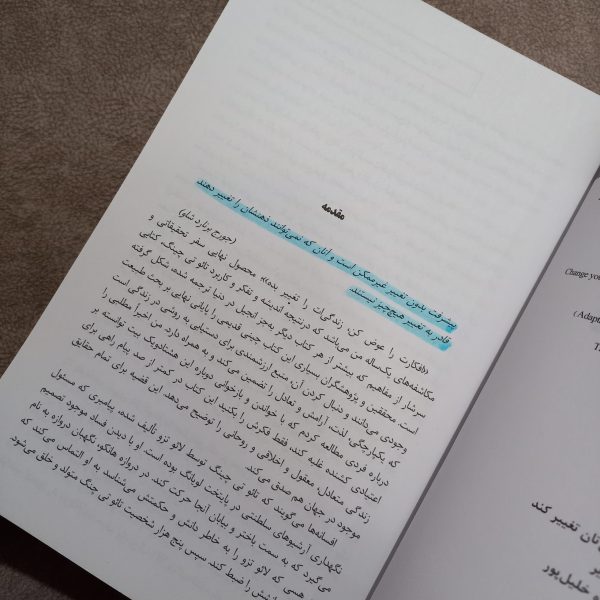 مقدمه
پیشرفت بدون تغییر غیرممکن است و آنان که نمی‌توانند ذهنشان را تغییر دهند
قادر به تغییر هیچ چیز نیستند.
(جورج برنارد شاو)
«افکارت را عوض کن، زندگی‌ات را تغییر بده»؛ محصول نهایی سفر تحقیقاتی و
مکاشفه‌های یکساله من می‌باشد که درنتیجه اندیشه و تفکر و کاربرد تائو تی جینگ، کتابی
سرشار از مفاهیم که بیشتر از هر کتاب دیگر به‌جز انجیل در دنیا ترجمه شده، شکل گرفته
است. محققین و پژوهشگران بسیاری این کتاب چینی قدیمی را پایانی نهایی بر بحث طبیعت
وجودی می‌دانند و دنبال کردن آن، منبع ارزشمندی برای دستیابی به روشی در زندگی است
که یکپارچگی، لذت، آرامش و تعادل را تضمین می‌کند و به همراه دارد. من اخیرا مطلبی را
درباره فردی مطالعه کردم که با خواندن و بازخوانی دوباره این هشتادویک بیت توانسته بر
اعتیادی کشنده غلبه کند. فقط فکرش را بکنید! این کتاب در کمتر از صد پیام راهی برای
زندگی متعادل، معقول و اخلاقی و روحانی را توضیح می‌دهد. این قضیه برای تمام حقایق
موجود در جهان هم صدق می‌کند.
افسانه‌ها می‌گویند که تائو تی جینگ توسط لائو تزو تألیف شده، پیامبری که مسئول
نگهداری آرشیوهای سلطنتی در پایتخت لویانگ بوده است. او با دیدن فساد موجود تصمیم
می‌گیرد که به سمت باختر و بیابان آنجا حرکت کند. در دروازه هانکو، نگهبان دروازه به نام
هسی که لائو تزو را به خاطر دانش و حکمتش می‌شناسد به او التماس می‌کند که
را ضبط کند. سپس پنج هزار شخصیت تائو تی جنگ متولد و خلق می‌شود.
Change you
(Adapt
T
تان تغییر کند
خلیل پور